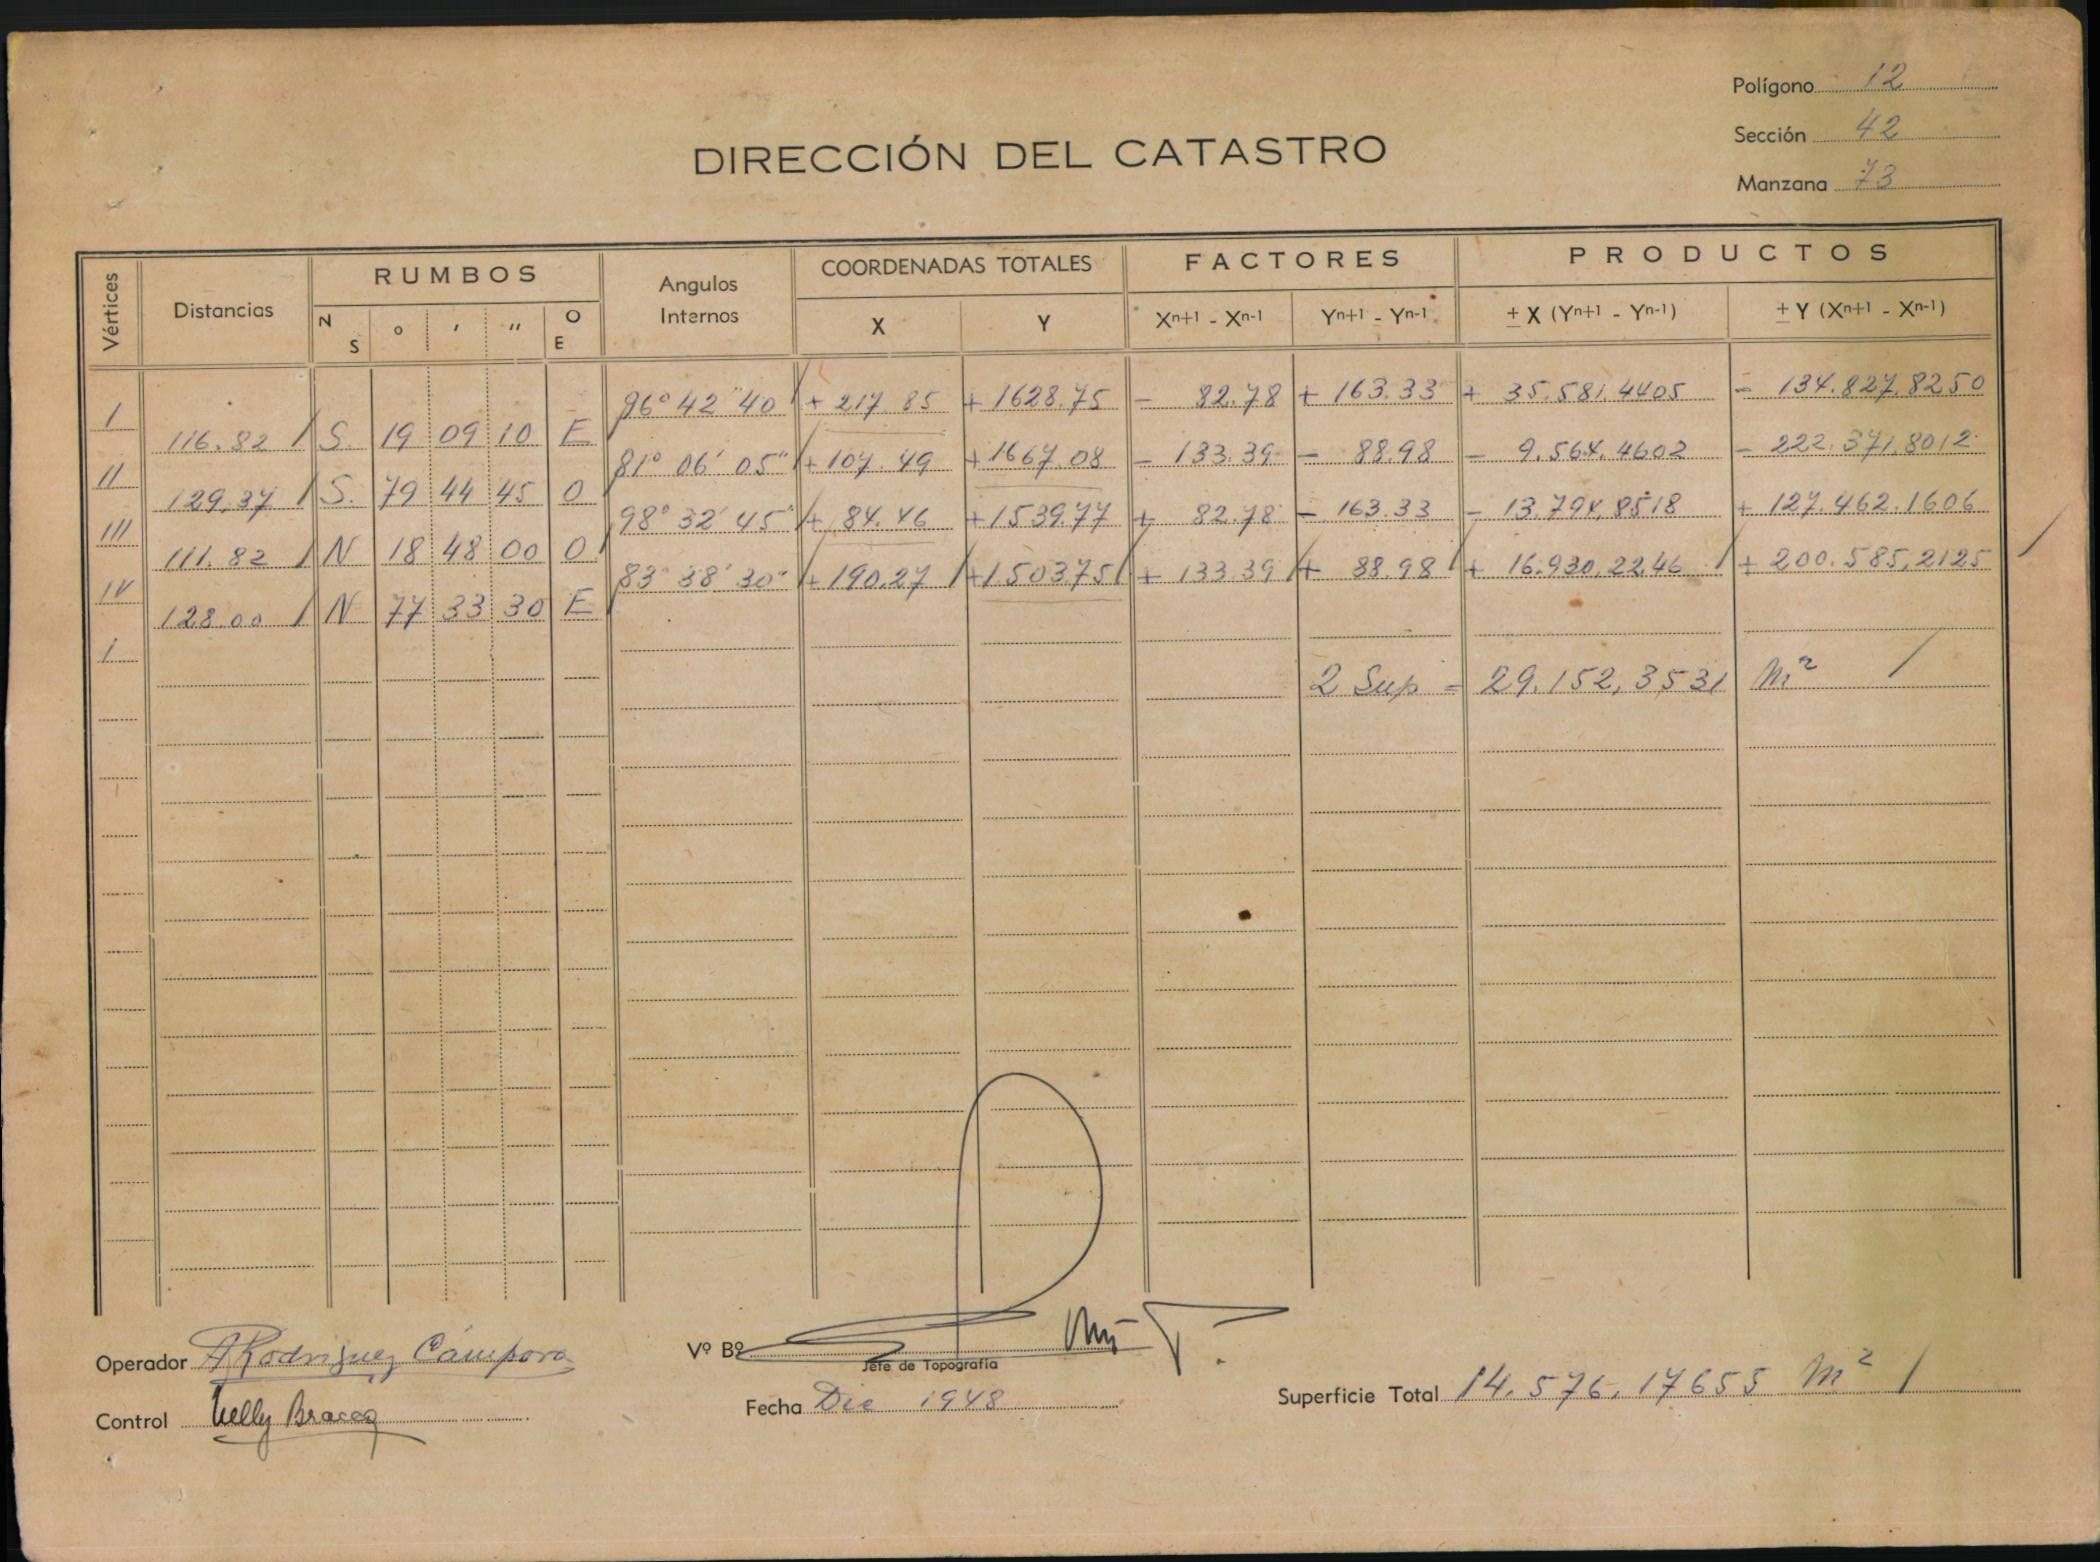 Polígono 12
Sección 42
Manzana 73
DIRECCIÓN DEL CATASTRO
Vértices Distancias RUMBOS Angulos Internos COORDENADAS TOTALES FACTORES PRODUCTOS
N S ° ′ ″ O E X Y Xn+1 - Xn-1 Yn+1 - Yn-1 ± X (Yn+1 - Yn-1) ± Y (Xn+1 - Xn-1)
I 96° 42' 40" + 217.85 + 1628.75 - 82.78 + 163.33 + 35.581.4405 - 134.827.8250
116.82 S. 19 09 10 E
II 81° 06' 05" + 107.49 + 1667.08 - 133.39 - 88.98 - 9.564.4602 - 222.371.8012
129.37 S. 79 44 45 O
III 98° 32' 45" + 84.46 + 1539.77 + 82.78 - 163.33 - 13.794.8518 + 127.462.1606
111.82 N 18 48 00 O
IV 83° 38' 30" + 190.27 + 1503.75 + 133.39 + 88.98 + 16.930.2246 + 200.585,2125
128.00 N 77 33 30 E
I
2 Sup = 29.152,3531 m²
Operador A Rodriguez Cámpora
Vº Bº
Jefe de Topografía
Control Nelly Bracco
Fecha Dic 1948
Superficie Total 14.576,17655 m²